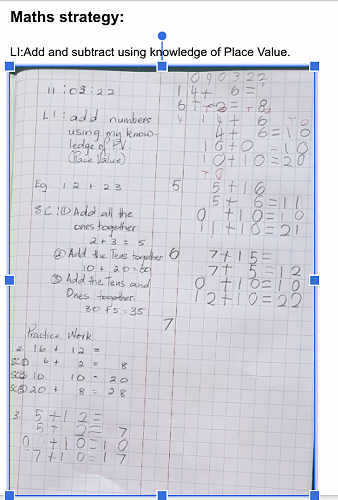 Maths strategy:
LI:Add and subtract using knowledge of Place Value.
11:03:22
LI: add numbers
using my know-
ledge of PV
(Place Value)
Eg. 12 + 23
SC: ① Add all the
ones together
2 + 3 = 5
② Add the Tens together
10 + 20 = 30
③ Add the Tens and
Ones together.
30 + 5 = 35
Practice Work
2. 16 + 12 =
SC① 6 + 2 = 8
SC② 10 10 = 20
SC③ 20 + 8 = 28
3. 5 + 12 =
5 + 2 = 7
0 + 10 = 10
7 + 10 = 17
090322
14 + 6 =
4 14 + 6
4 + 6 = 10
10 + 0 = 10
10 + 10 = 20
5 5 + 16
5 + 6 = 11
0 + 10 = 10
11 + 10 = 21
6 7 + 15 =
7 + 5 = 12
0 + 10 = 10
12 + 10 = 22
7